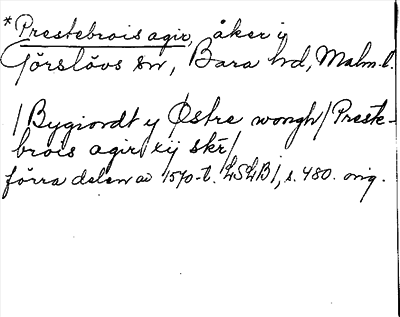 *Prestebrois agir, åker i
Görslövs sn, Bara hd, Malm. l.
/Bygiordt y Østre wongh/ Preste-
brois agir xij skr/
förra delen av 1570-t. LSLB 1, s. 480. orig.